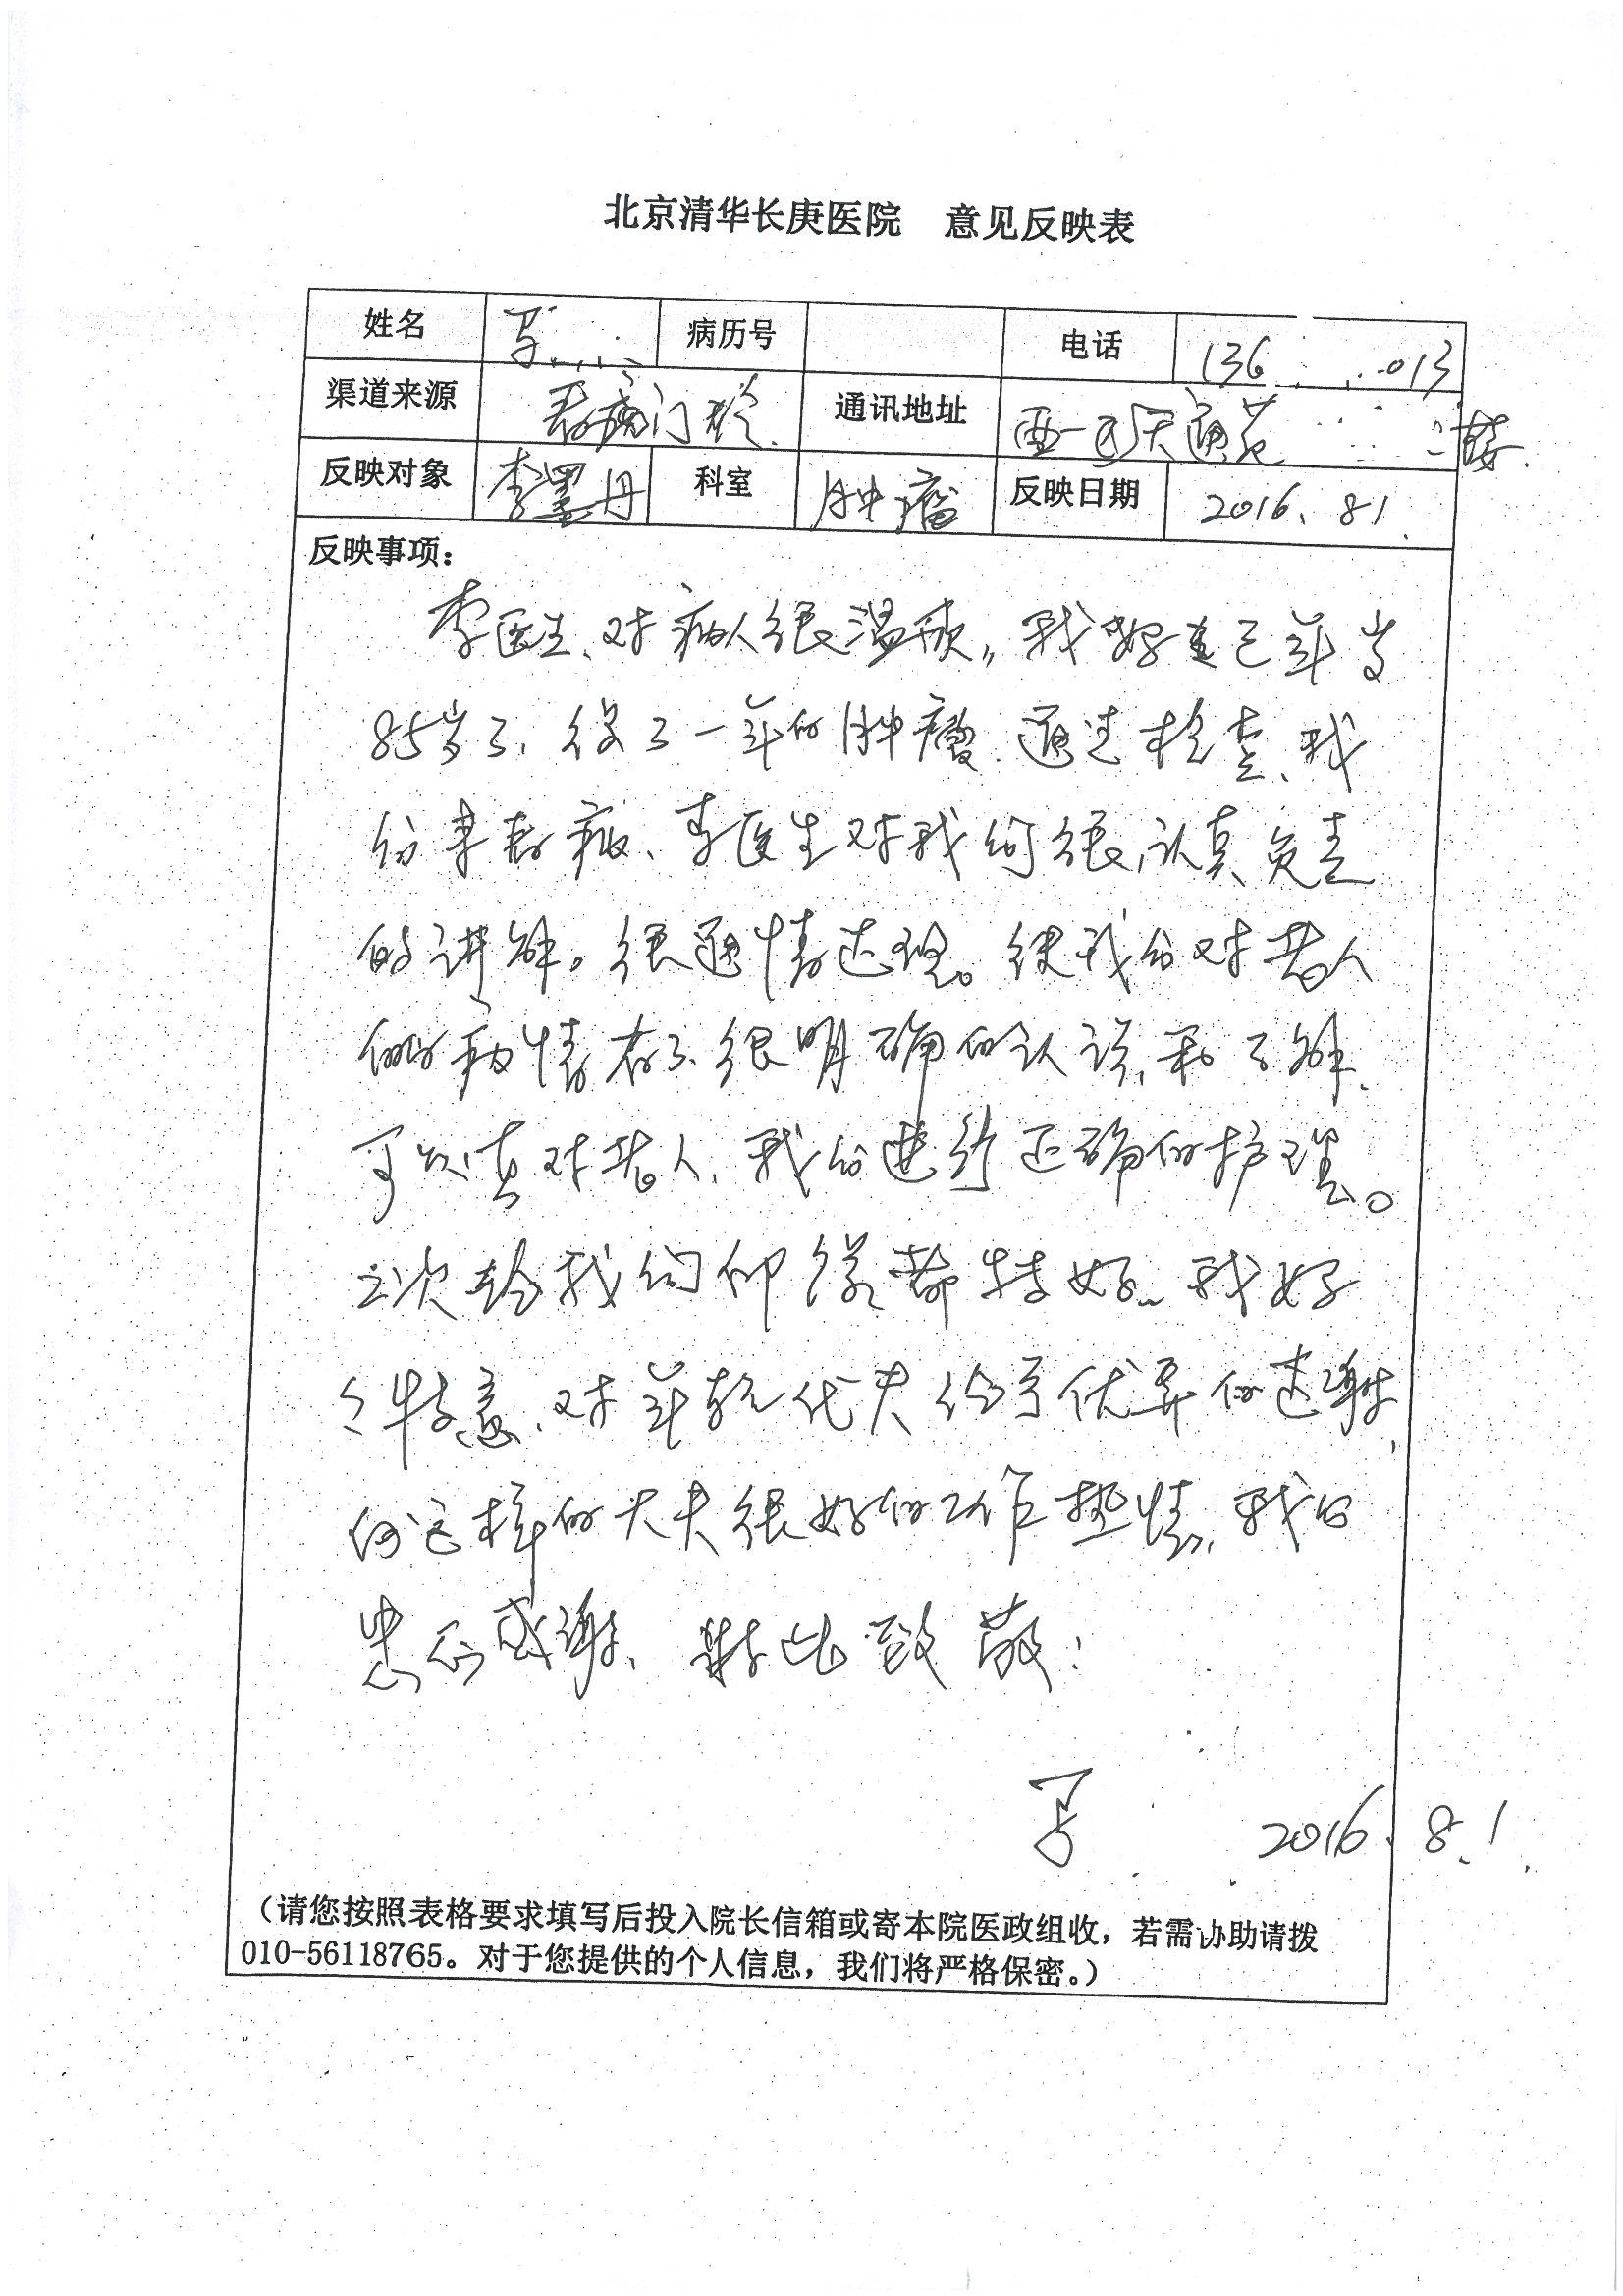 北京清华长庚医院 意见反映表
姓名 病历号 电话 136 013
渠道来源 看病门诊. 通讯地址 西一区天通苑 二楼.
反映对象 李墨丹 科室 肿瘤 反映日期 2016. 81.
反映事项:
李医生、对病人很温 我 已年岁
85岁了, 得了一年的肿瘤. 通过检查、我
们来看病、李医生对我们很认真、负责
的讲解。很通情达理。使我们对老人
的病情有了很明确的认识, 和了解.
可以 对老人、我们进行正确的护理。
次给我们 都特好、我
特意、对年轻代夫给予优异的 谢,
们这样的大夫很好的工作热情, 我们
忠心感谢、 此致敬!
2016. 8. 1.
(请您按照表格要求填写后投入院长信箱或寄本院医政组收,若需协助请拨
010-56118765。对于您提供的个人信息,我们将严格保密。)